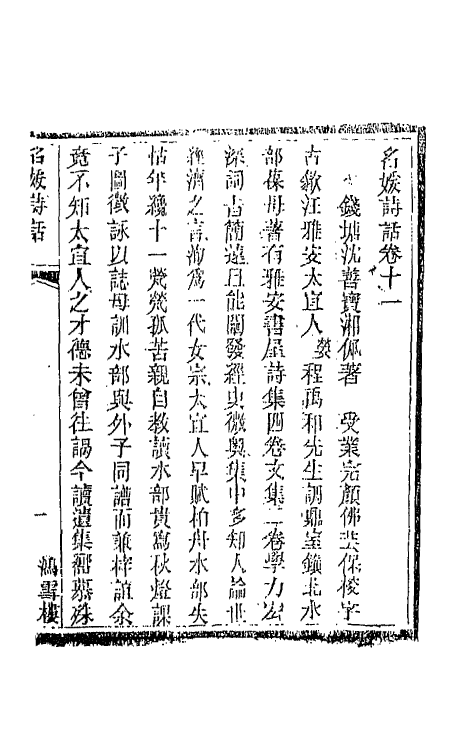 名媛詩話卷十一
錢塘沈善寶湘佩著　受業完顏佛芸保梭字
古歙汪雅安太宜人嫈程禹和先生調鼎室鎮北水
部葆母著有雅安書屋詩集四卷文集二卷學力宏
深詞旨簡遠且能闡發經史微奧集中多知人論世
經濟之言洵爲一代女宗太宜人早賦柏舟水部失
怙年纔十一煢煢孤苦親自教讀水部貴寫秋燈課
子圖徵詠以誌母訓水部與外子同譜而兼梓誼余
竟不知太宜人之才德未曾往謁今讀遺集嚮慕殊
名媛詩話
一
鴻雪樓